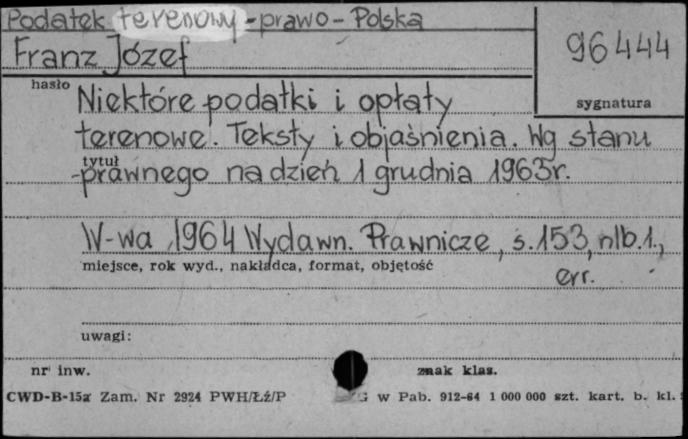 Podatek terenowy - prawo - Polska
Franz Józef
96444
hasło
sygnatura
Niektóre podatki i opłaty
terenowe. Teksty i objaśnienia. Wg stanu
tytuł
prawnego na dzień 1 grudnia 1963r.
W-wa, 1964 Wydawn. Prawnicze, s. 153, nlb. 1.,
miejsce, rok wyd., nakładca, format, objętość
err.
uwagi:
nr inw.
znak klas.
CWD-B-15a Zam. Nr 2924 PWH/Łź/P
G w Pab. 912-64 1 000 000 szt. kart. b. kl.